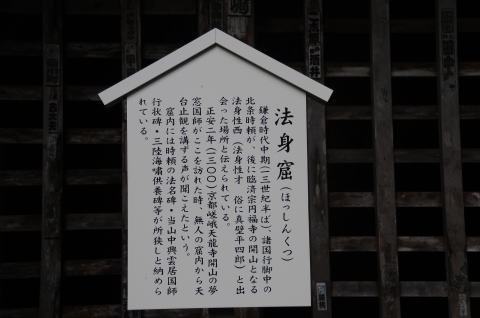 法身窟(ほっしんくつ)
鎌倉時代中期(一三世紀半ば)、諸国行脚中の
北条時頼が、後に臨済宗円福寺の開山となる
法身性西(法身性才 俗に真壁平四郎)と出
会った場所と伝えられている。
正安二年(一三〇〇)京都嵯峨天龍寺開山の夢
窓国師がここを訪れた時、無人の窟内から天
台止観を講ずる声が聞こえたという。
窟内には時頼の法名碑・当山中興雲居国師
行状碑・三陸海嘯供養碑等が所狭しと納めら
れている。